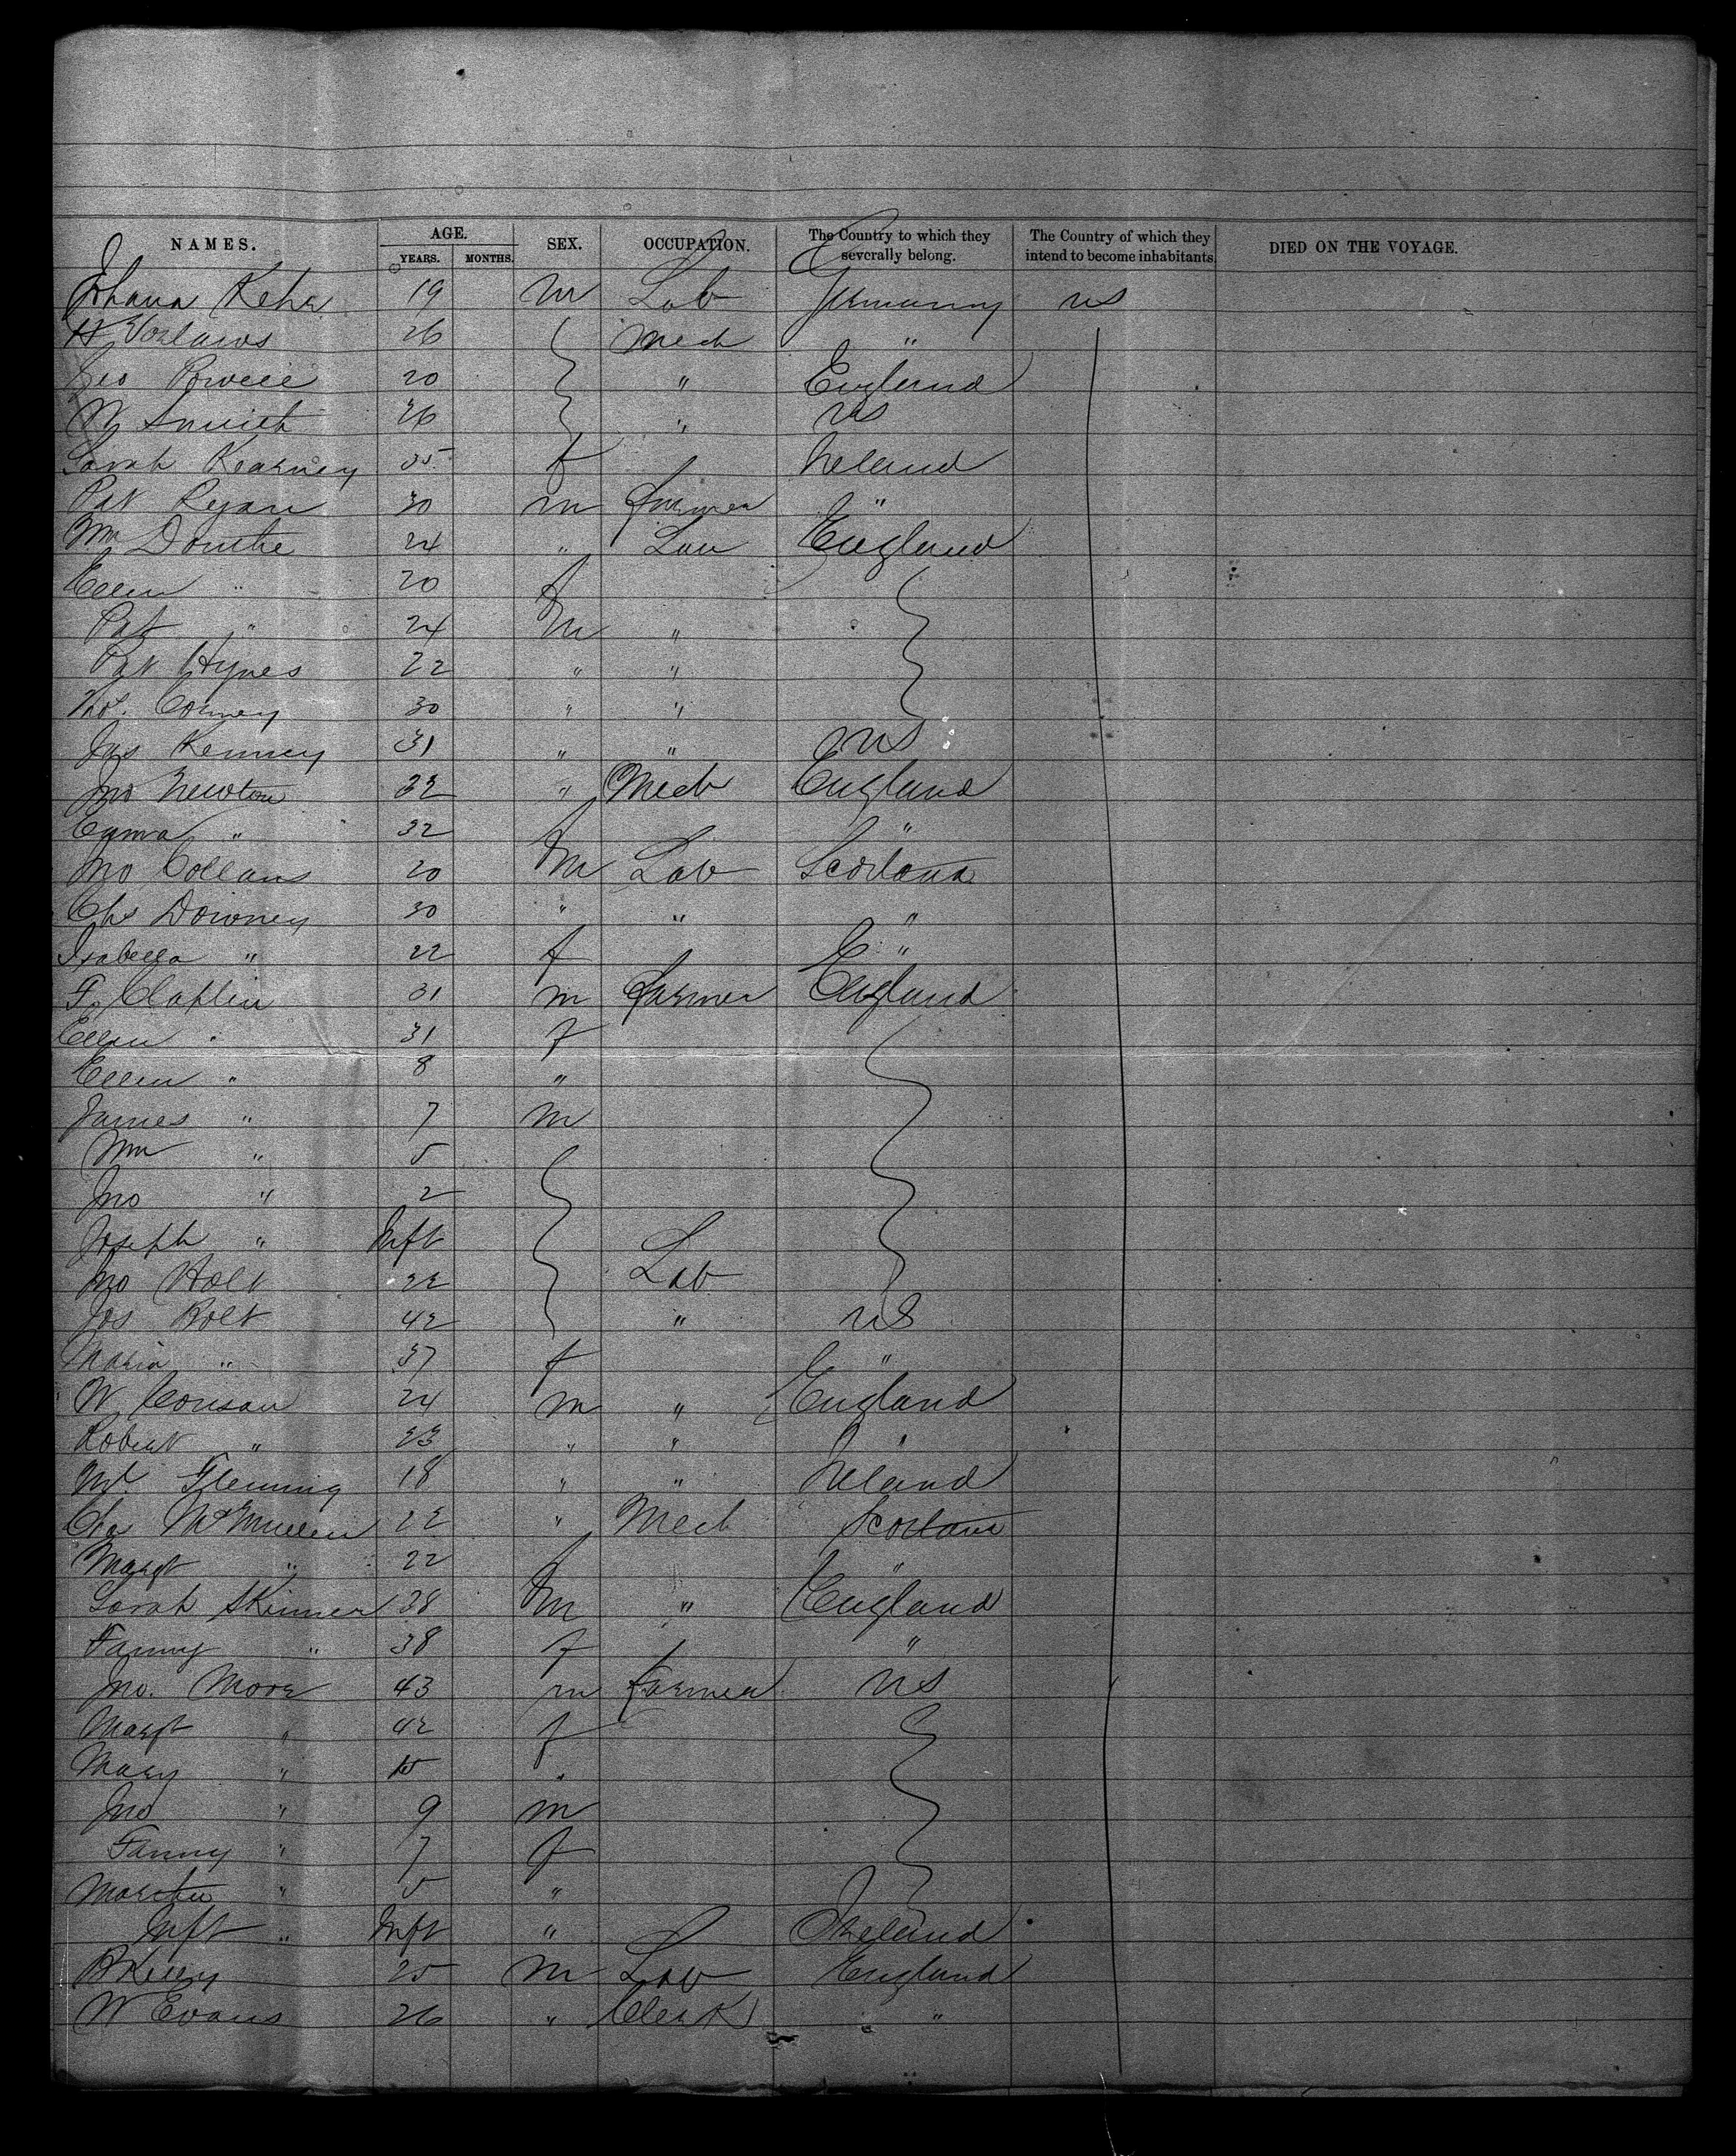 NAMES. AGE. YEARS. MONTHS. SEX. OCCUPATION. The Country to which they severally belong. The Country of which they intend to become inhabitants. DIED ON THE VOYAGE.
Johana Kehr 19 m Lab Germany US
H 26 Mech "
Geo Powell 20 " England
W Smith 26 " US
Sarah Kearney 35 f Ireland
Pat Ryan 30 m farmer "
Wm Douthe 24 " Lab England
Ellen " 20 f
Pat " 24 m "
Pat Hynes 22 " "
Thos. Corney 30 " "
Jas Kenney 31 " " US
Jno Newton 32 " Mech England
Emma " 32 f "
Jno Collans 20 m Lab Scotland
Chs Downey 30 " " "
Isabella " 22 f "
F. Claflin 31 m farmer England
Ellen " 31 f
Ellen " 8 "
James " 7 m
Wm " 5
Jno " 2
Joseph " Inft
Jno Holt 22 Lab
Jos Bolt 42 " US
Maria " 37 f "
W Consan 24 m " England
Robert " 23 " " "
Ml Fleming 18 " " Ireland
Chs McMullen 22 " Mech Scotland
Margt " 22 f "
Sarah Skinner 38 m " England
Fanny " 38 f "
Jno. Moore 43 m farmer US
Margt " 42 f
Mary " 15 "
Jno " 9 m
Fanny " 7 f
Martha " 5 "
Inft " Inft " Ireland
B Kelly 25 m Lab England
W Evans 26 " Clerk "